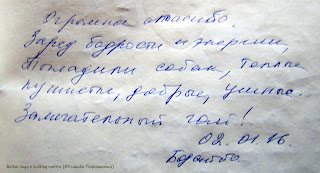 Огромное спасибо.
Заряд бодрости и энергии,
Погладили собак, теплые
пушистые, добрые, умные.
Замечательный гот!
02.01.16.